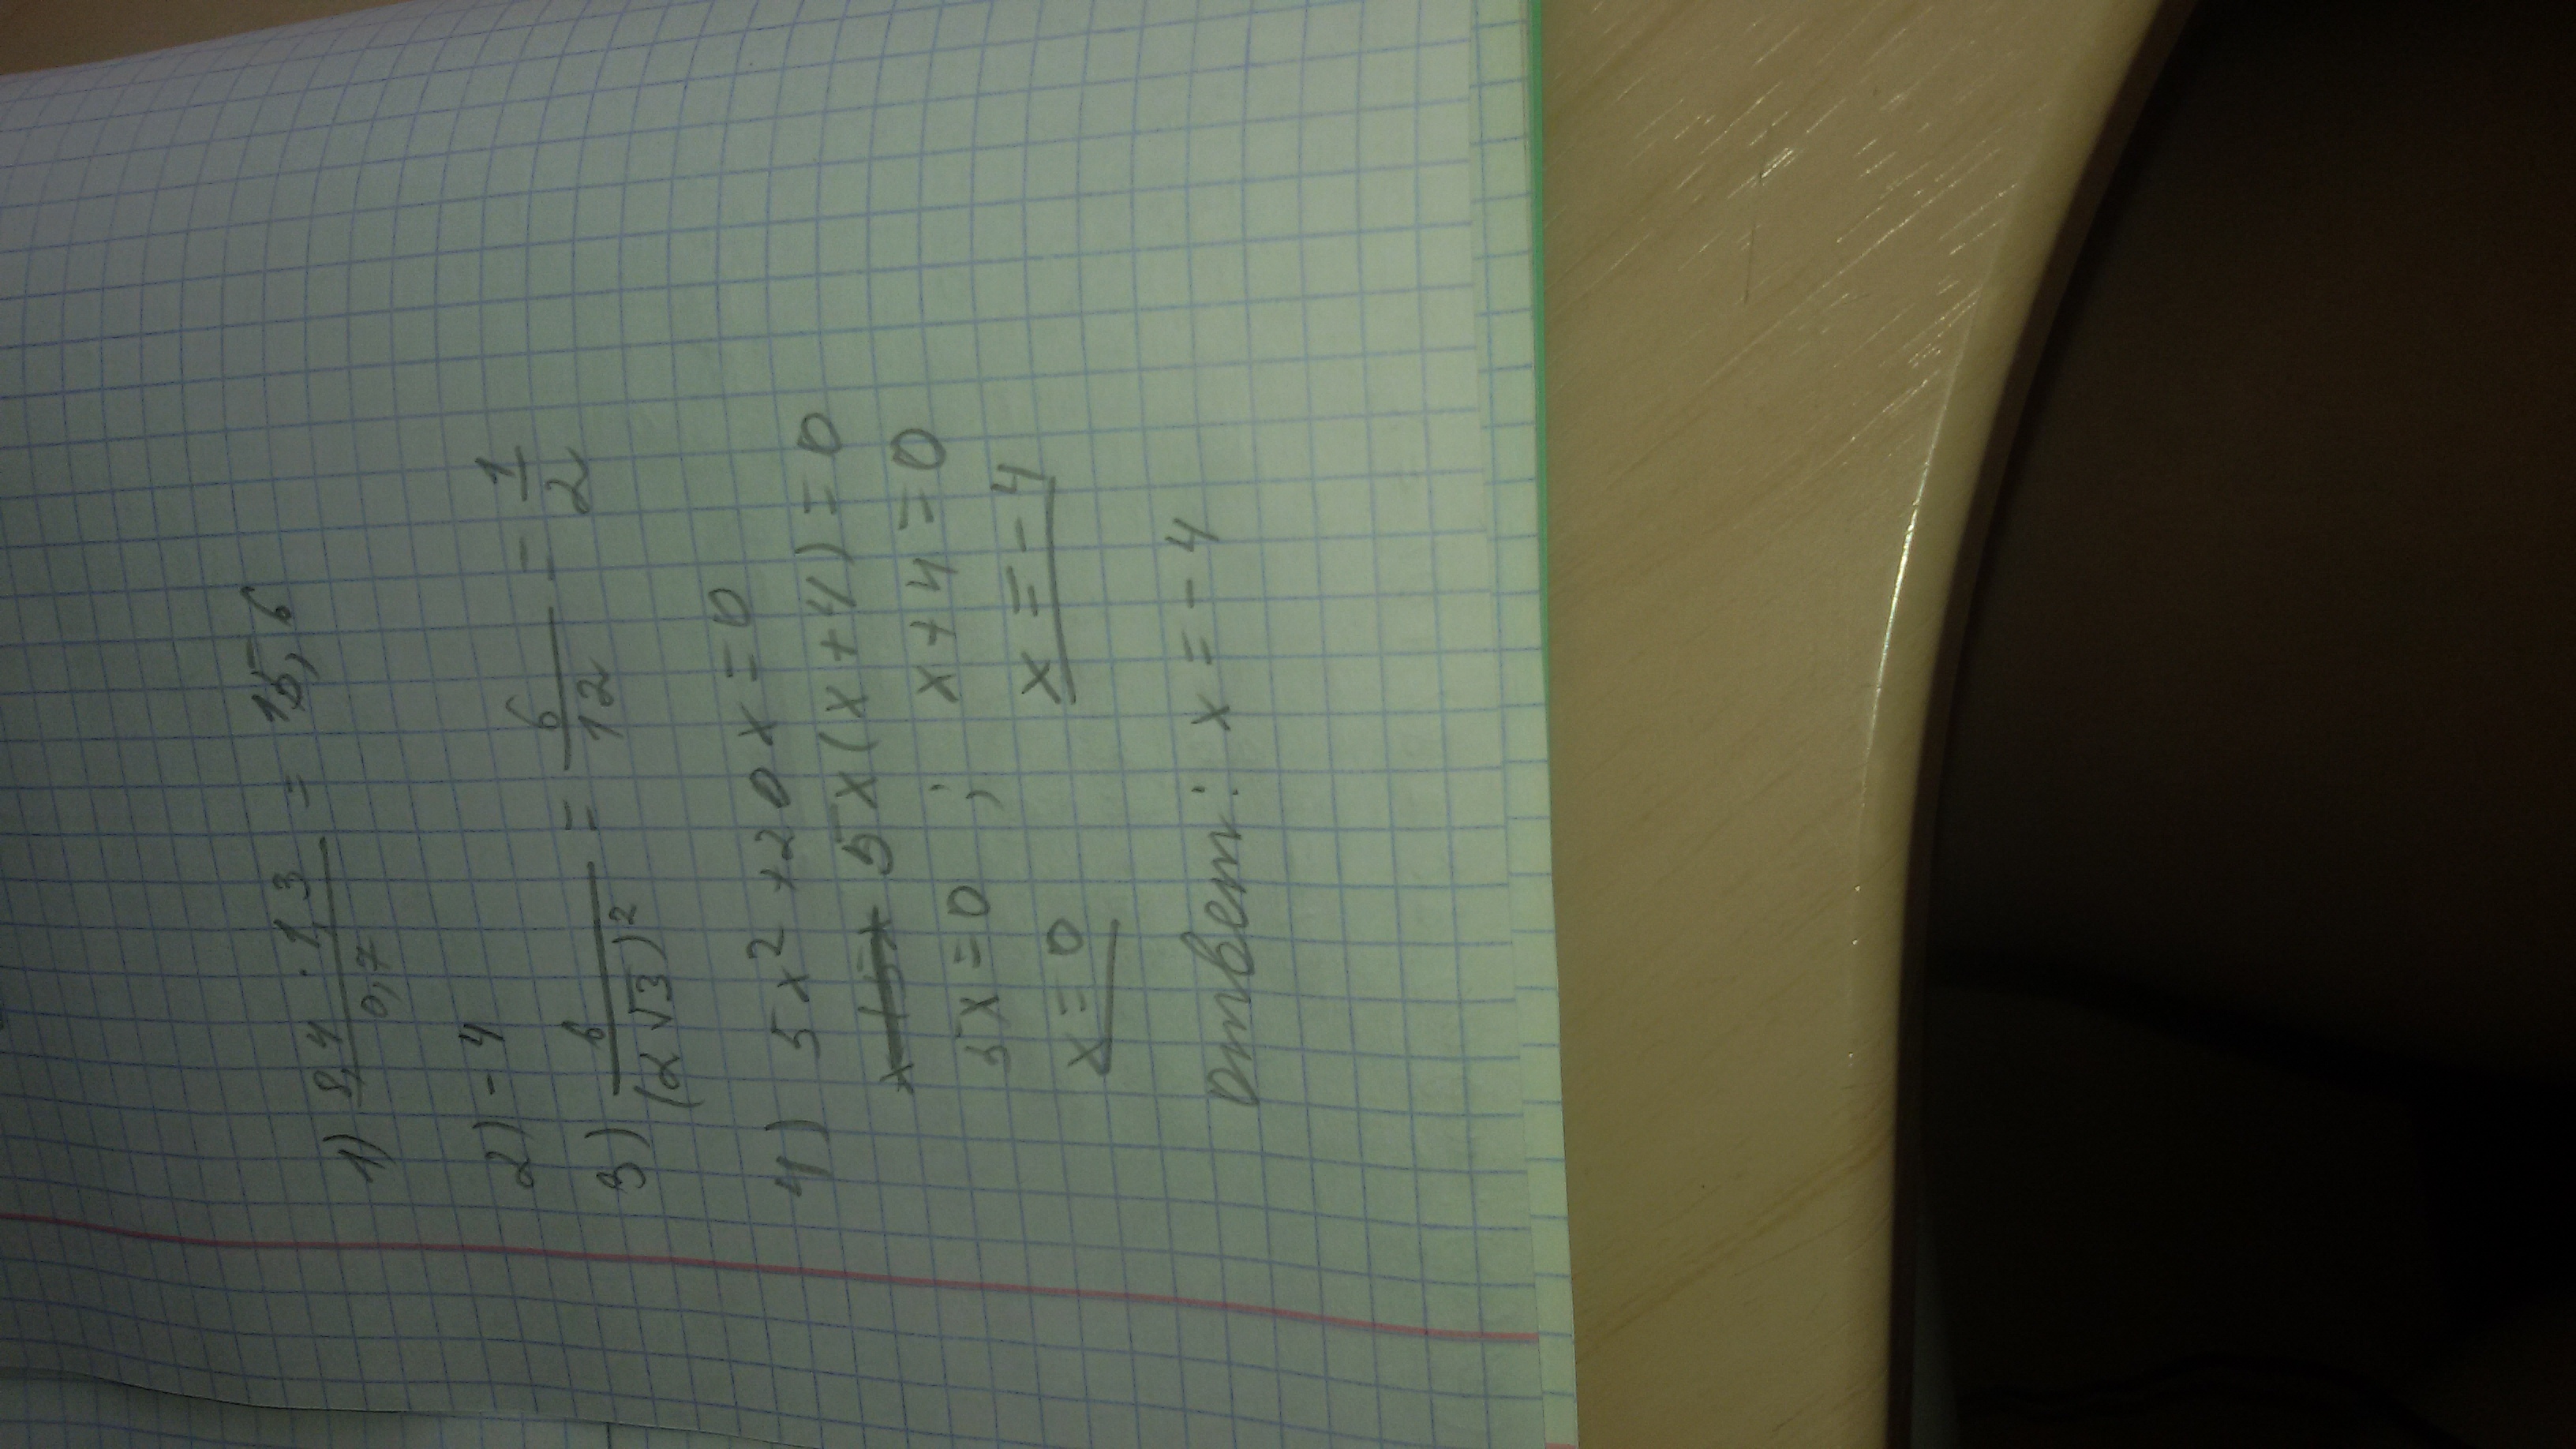 1) 8,4 · 1,3 / 0,7 = 15,6
2) - 4
3) 6 / (2√3)² = 6/12 = 1/2
4) 5x² + 20x = 0
5x(x+4) = 0
5x = 0 ; x + 4 = 0
x = 0 x = - 4
Ответ: x = - 4